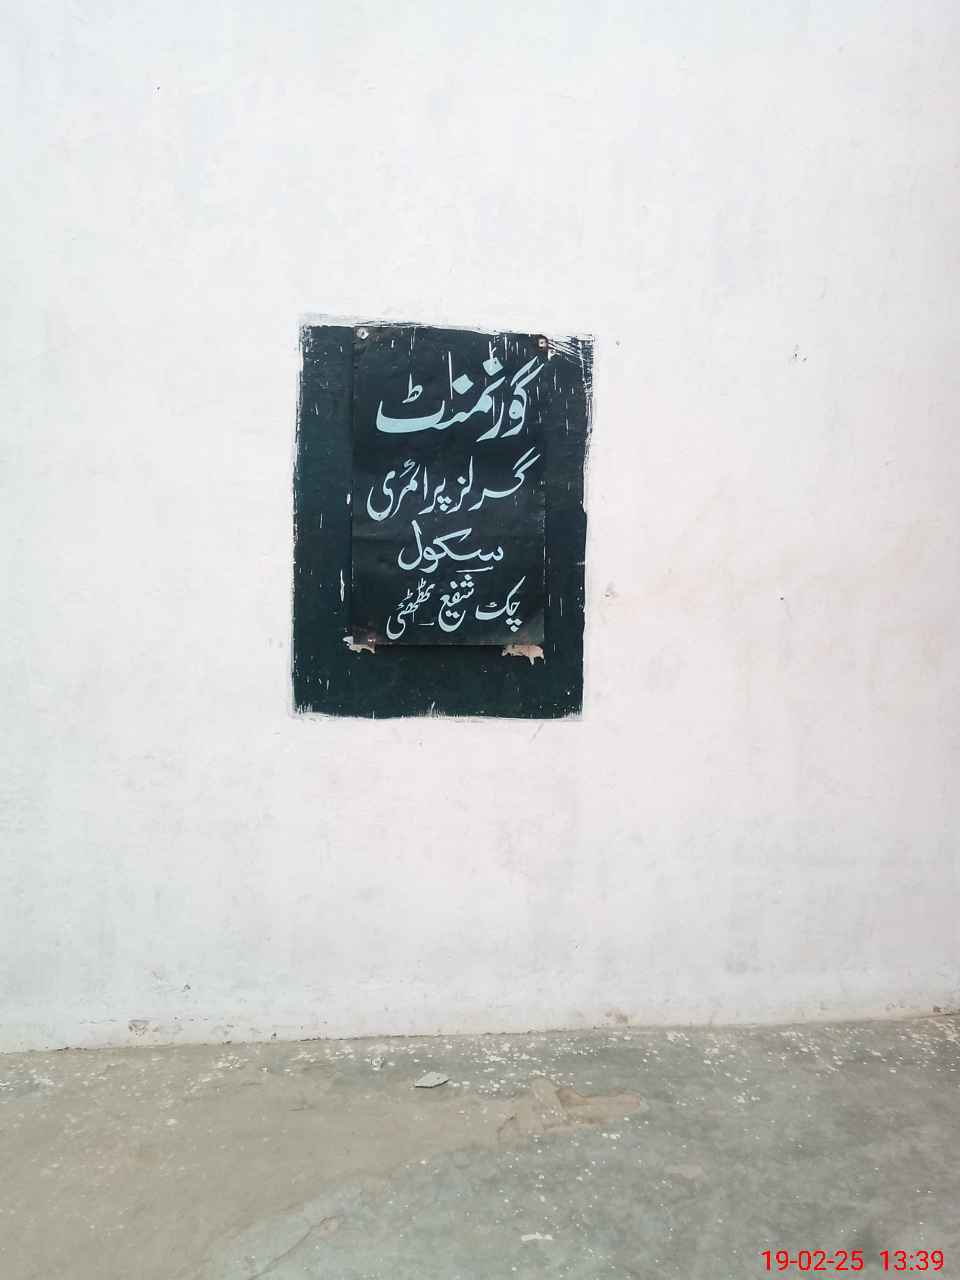 گورنمنٹ
گرلز پرائمری
سکول
چک شفیع ٹھٹھئی
19-02-25 13:39